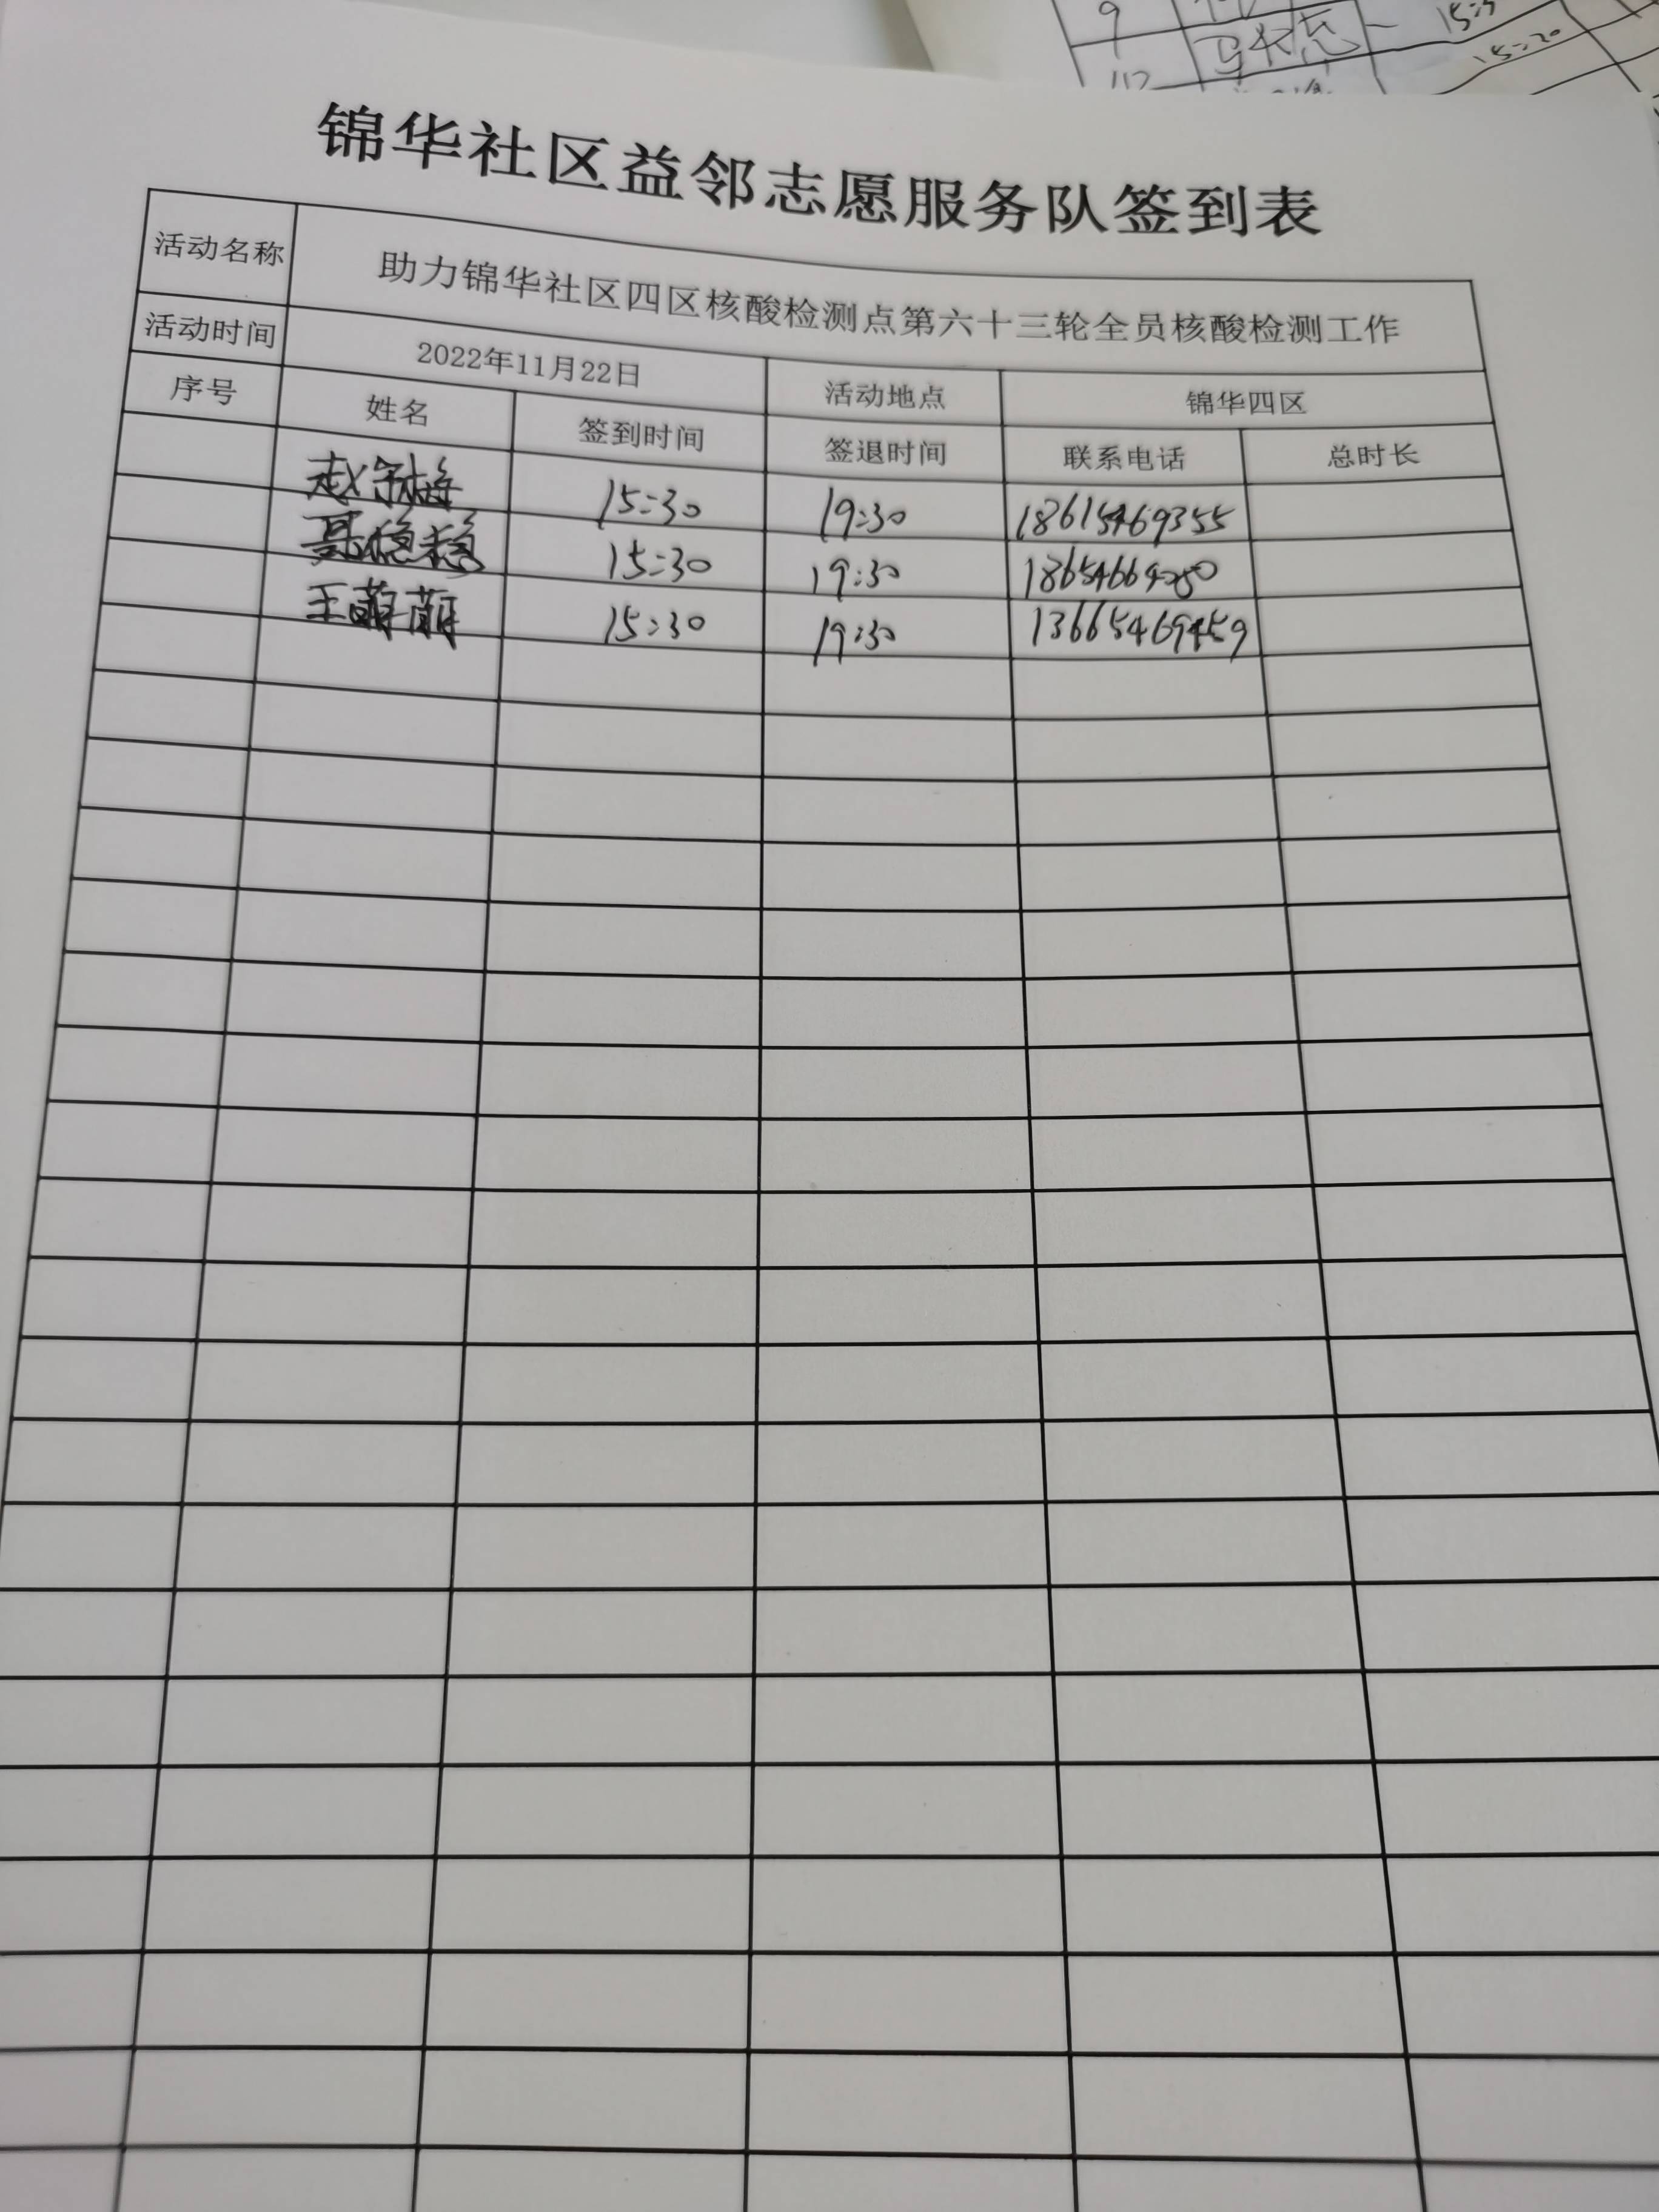 9
15:20
锦华社区益邻志愿服务队签到表
活动名称 助力锦华社区四区核酸检测点第六十三轮全员核酸检测工作
活动时间 2022年11月22日 活动地点 锦华四区
序号 姓名 签到时间 签退时间 联系电话 总时长
赵 15:30 19:30 18615469355
稳稳 15:30 19:30
王萌萌 15:30 19:30 13665469459